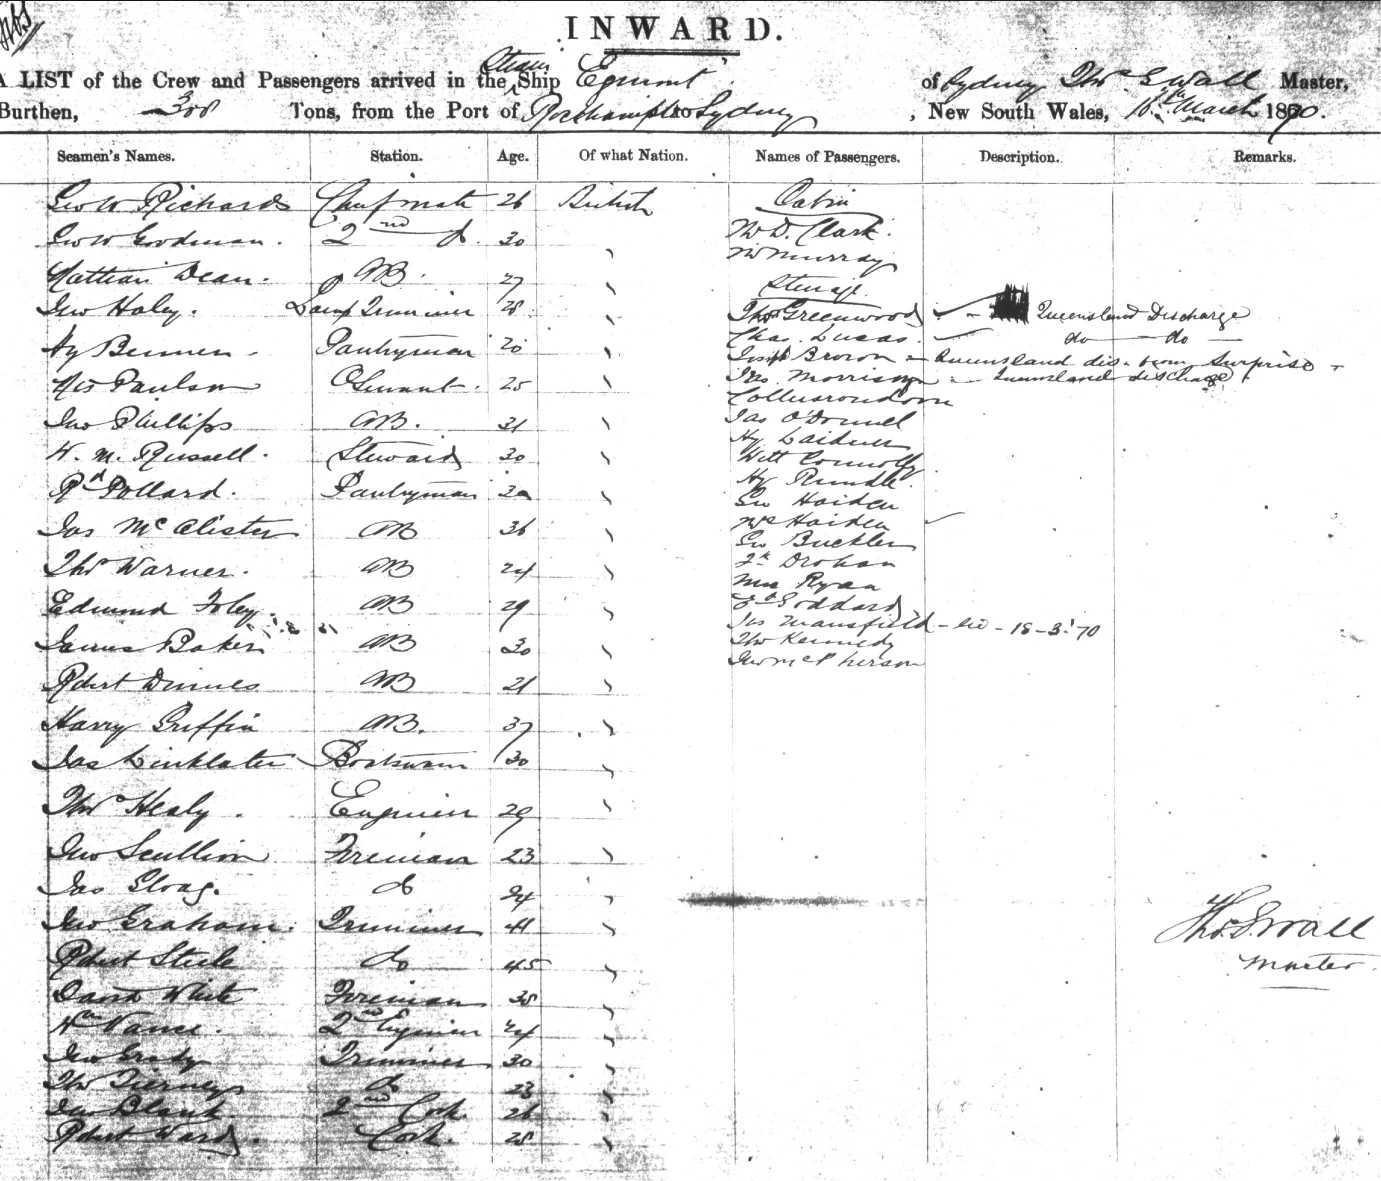 INWARD.
A LIST of the Crew and Passengers arrived in the Steam Ship Egmont of Sydney Thos S Wall Master,
Burthen, Tons, from the Port of Rockhampton to Sydney, New South Wales, 16th March 1870.
Seamen's Names. Station. Age. Of what Nation. Names of Passengers. Description. Remarks.
Geo W Richards Chief mate 26 British Cabin
Geo W Goodman. 2nd do. 30 Mr D. Clark.
Mr Murray
Dean. AB. 27 Steerage
Jno Haley. Lamp Trimmer 28 Thos Greenwood Queensland Discharge
Chas. Lucas. do do
Hy Pantryman 20 Josph Brown Queensland dis. from Surprise
Paulson OS 25 Jas Morrison Queensland discharge.
Jno Phillips AB. 31 Jas O'Donnel
Hy
W. M. Russell. Steward 30 Connolly
Rd Pollard. Pantryman Hy Rundle
Geo Haiden
Jas Mc Alister AB 36 Haiden
Geo Buckler
Thos Warner. AB 24 Drohan
Ryan
Edmund Foley. AB 29 Goddard
Jas Mansfield 18 - 3. 70
James Baker AB 30 Thos Kennedy
Jno McPherson
Robert AB 21
Harry Griffin AB. 37
Jas Linklater Boatswain 30
Thos Healy. Engineer 29
Jno Scullion Fireman 23
Jas Gloag. do 24
Jno Graham. Trimmer 41 Thos. S. Wall
Robert Steele do 45 Master
David White Fireman 38
Wm Vance. 2nd Engineer 24
Jno Grady Trimmer 30
Thos Tierney do 23
Jas 2nd Cook. 26
Robert Ward. Cook. 28